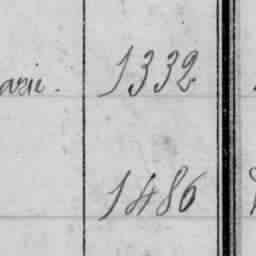 arie. 1332
1486